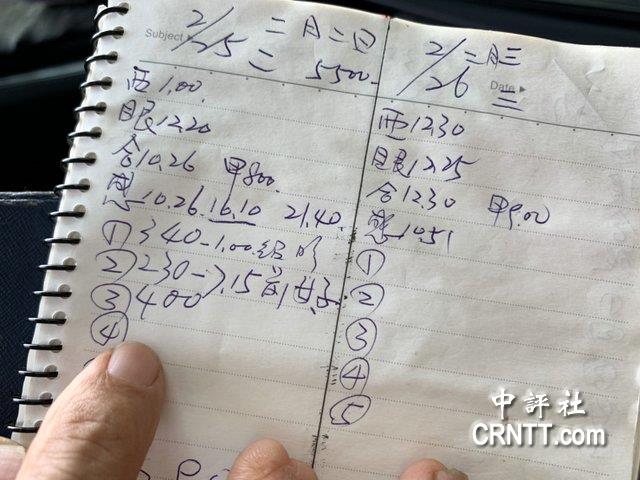 Subject
2/25 二月二日
二 5500.
西1.00.
眼12.20
合10.26 甲800.
感10.26.16.10 21.40.
① 340-1.00
② 230-7.15前
③ 400
④
2/26 二月三
Date
三
西1230
眼1225
合1230 甲9.00
感10.51
①
②
③
④
⑤
中評社
CRNTT.com